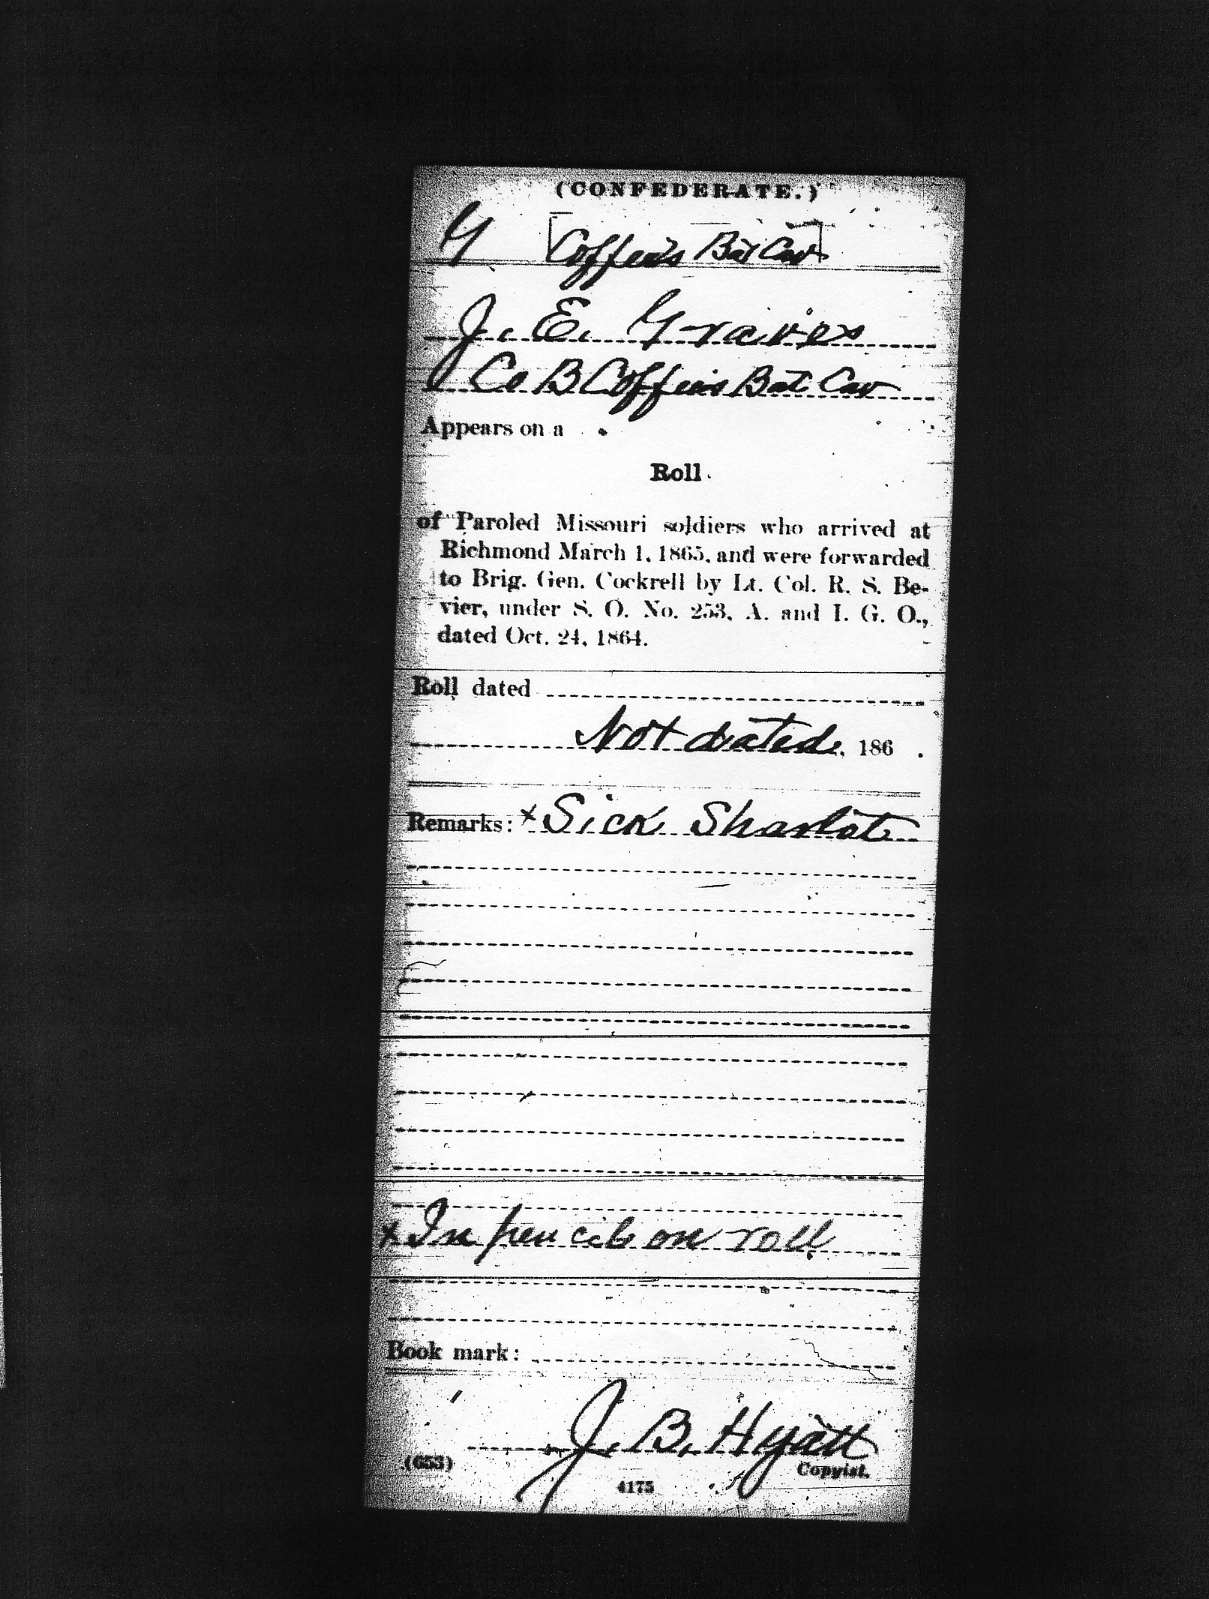 (CONFEDERATE.)
G [Coffee's Bat Cav]
J. E. Graves
Co B Coffee's Bat Cav
Appears on a
Roll
of Paroled Missouri soldiers who arrived at
Richmond March 1, 1865, and were forwarded
to Brig. Gen. Cockrell by Lt. Col. R. S. Be-
vier, under S. O. No. 253, A. and I. G. O.,
dated Oct. 24, 1864.
Roll dated
Not dated, 186 .
Remarks: x Sick Sharlot
x In pencil on roll
Book mark:
J. B. Hyatt
(653) Copyist.
4175